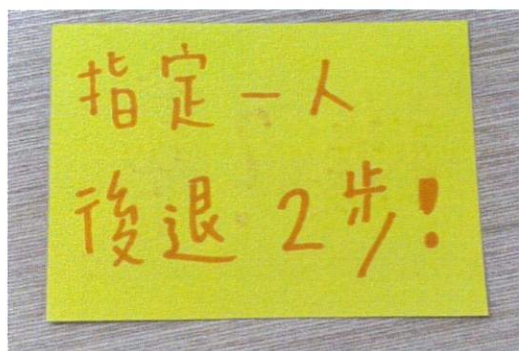 指定一人
後退 2步!